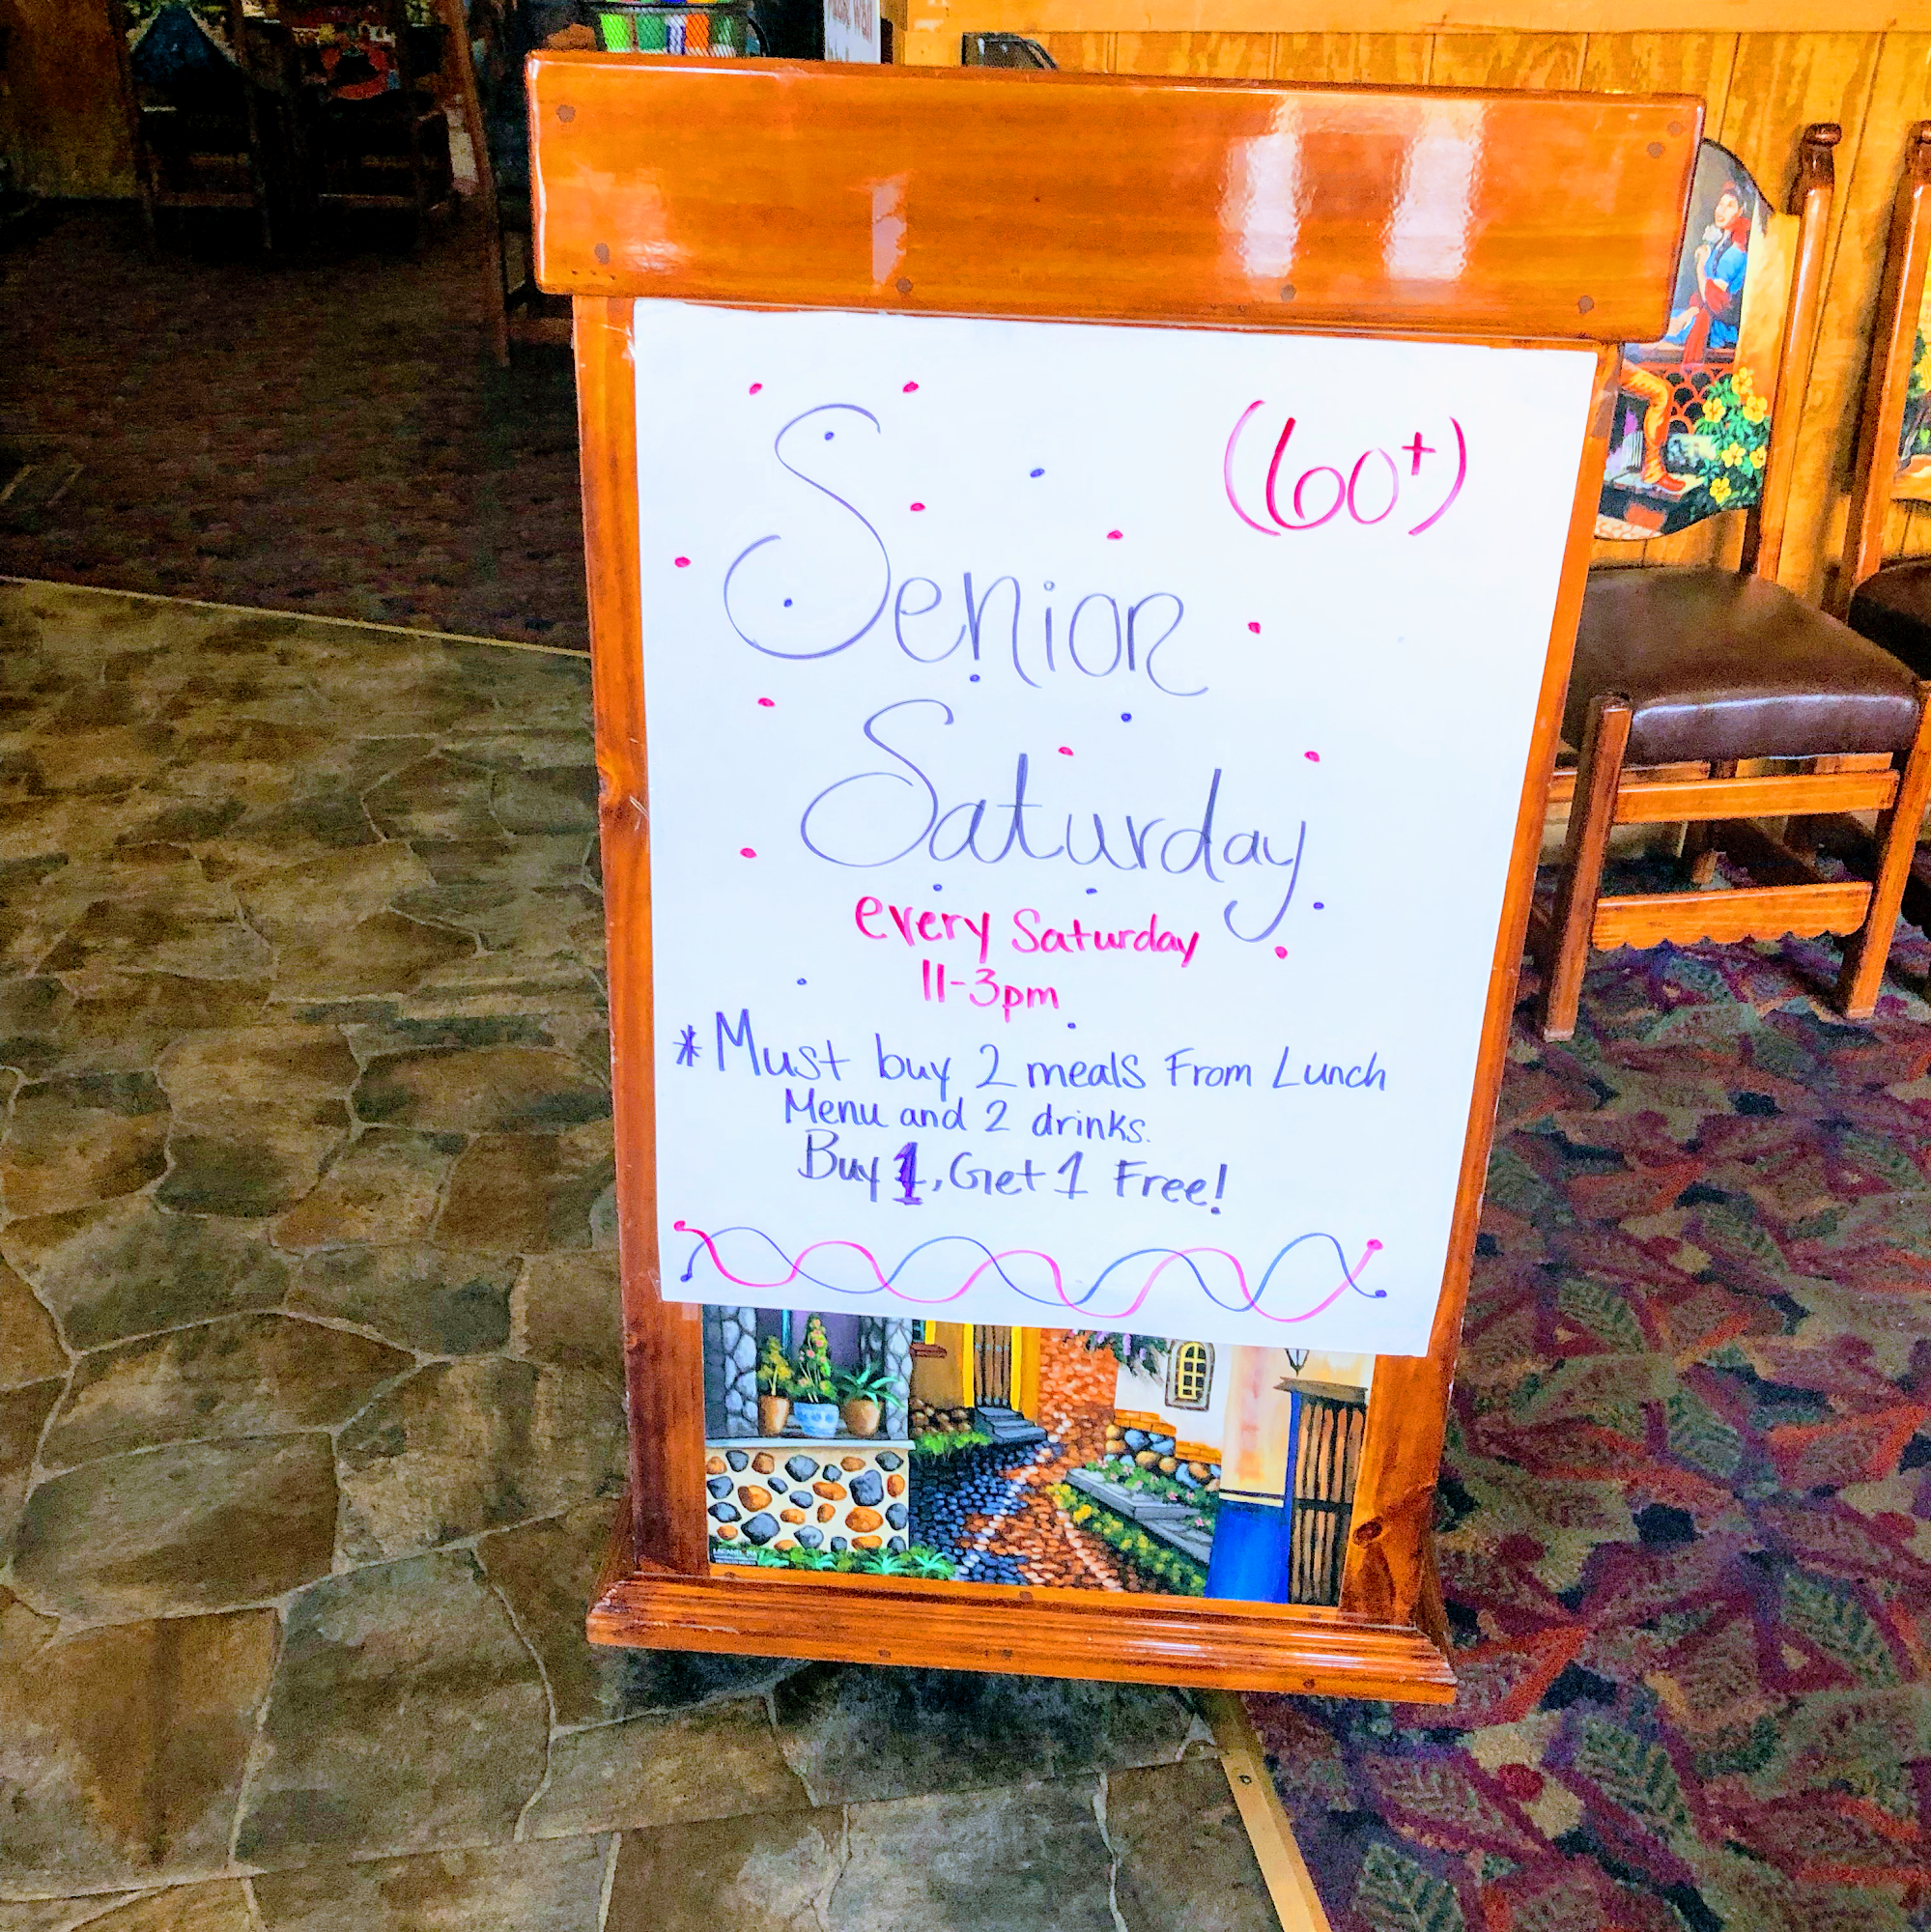 (60+)
Senior
Saturday
every Saturday
11-3pm
*Must buy 2 meals From Lunch
Menu and 2 drinks.
Buy 1, Get 1 Free!